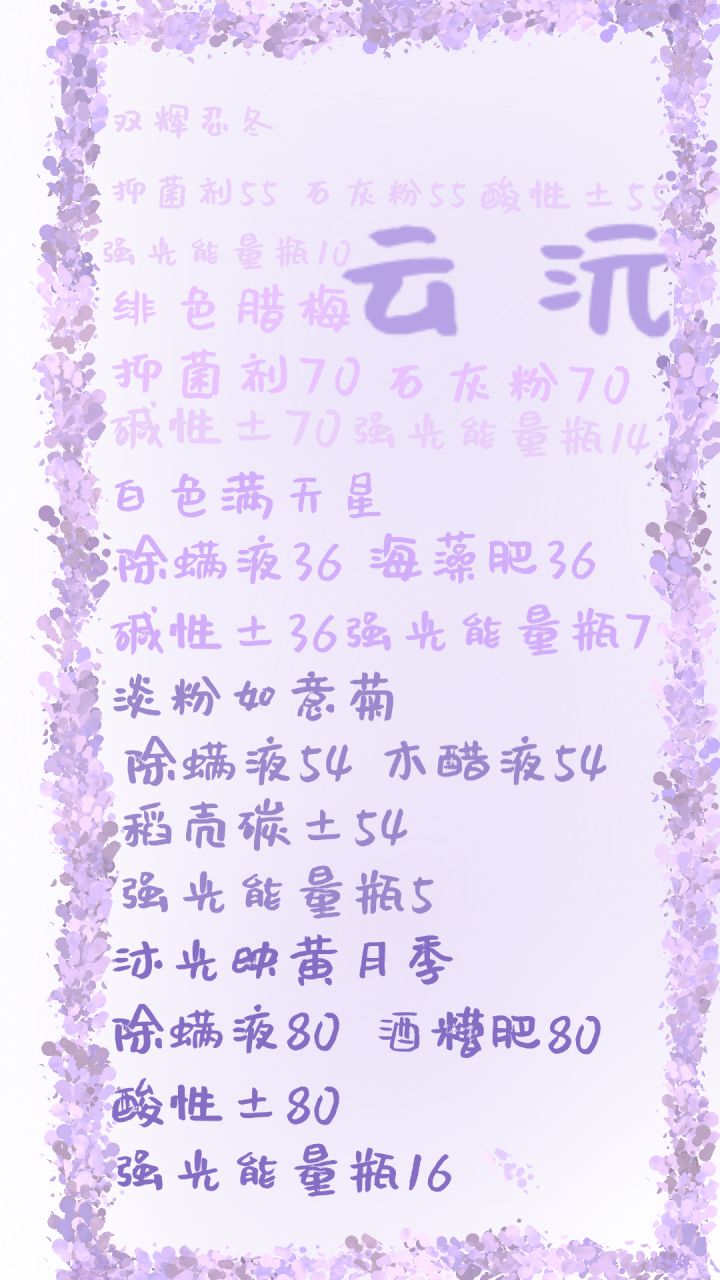 双辉忍冬
抑菌剂55 石灰粉55 酸性土55
强光能量瓶10
云 沅
绯色腊梅
抑菌剂70 石灰粉70
碱性土70 强光能量瓶14
白色满天星
除螨液36 海藻肥36
碱性土36 强光能量瓶7
淡粉如意菊
除螨液54 木醋液54
稻壳碳土54
强光能量瓶5
沐光映黄月季
除螨液80 酒糟肥80
酸性土80
强光能量瓶16